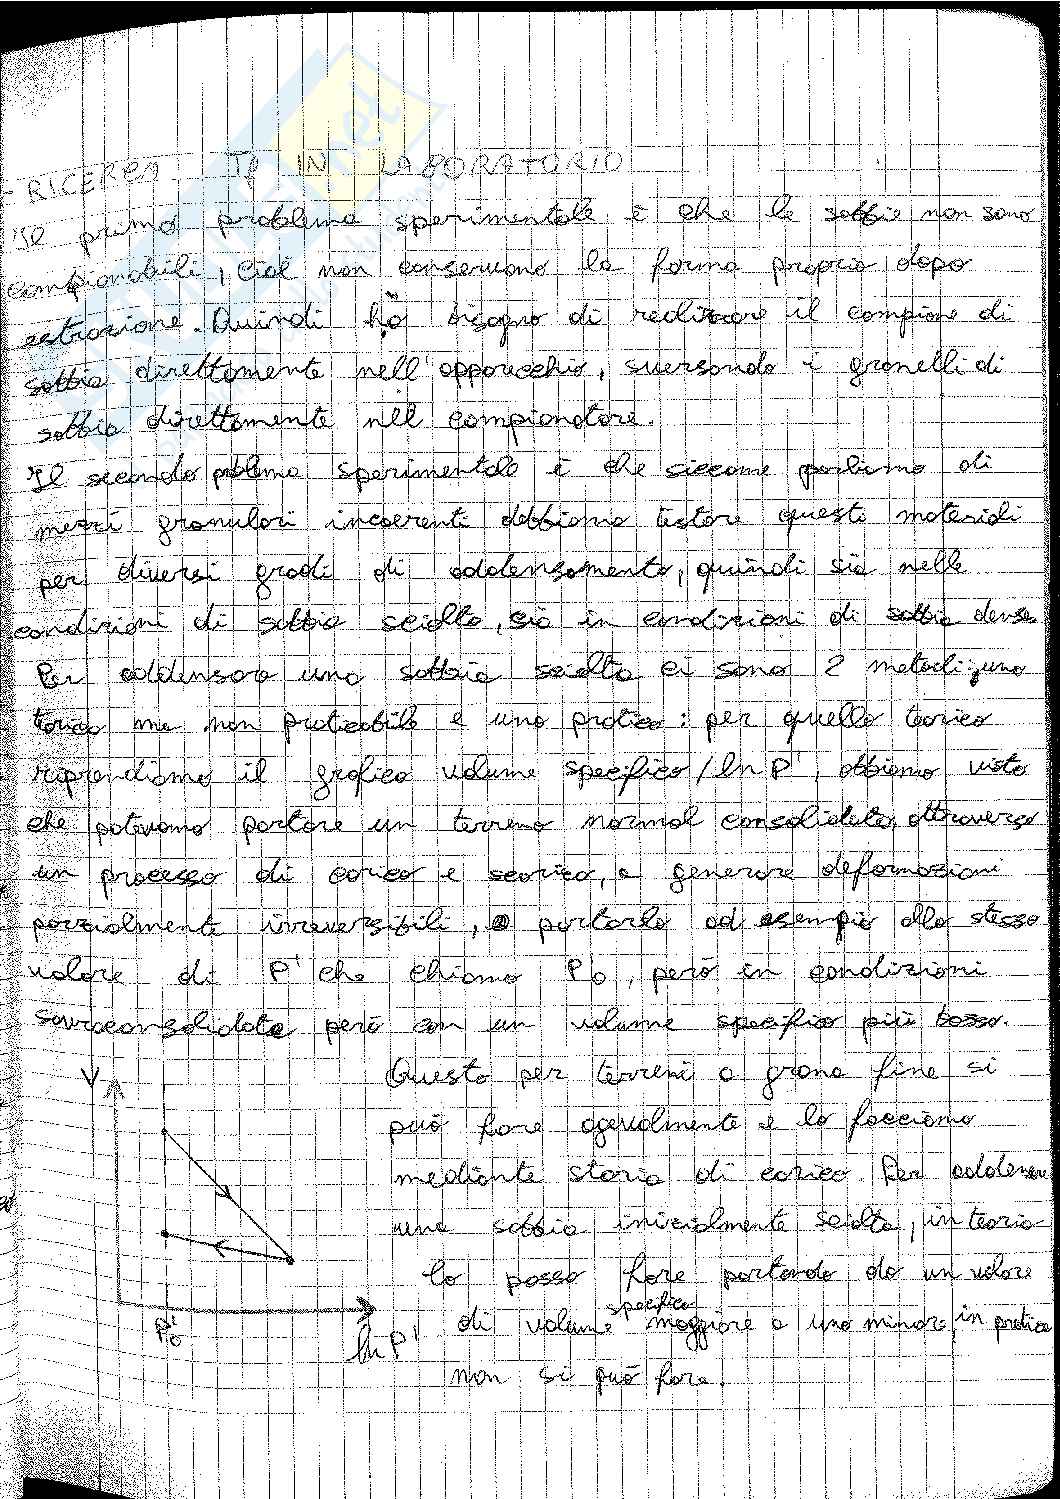 - RICERCA τf IN LABORATORIO
Il primo problema sperimentale è che le sabbie non sono
campionabili, cioè non conservano la forma propria dopo
estrazione. Quindi ho bisogno di realizzare il campione di
sabbia direttamente nell'apparecchio, riversando i granelli di
sabbia direttamente nell campionatore.
Il secondo problema sperimentale è che siccome parliamo di
mezzi granulari incoerenti dobbiamo testare questi materiali
per diversi gradi di addensamento, quindi sia nelle
condizioni di sabbia sciolta, sia in condizioni di sabbia densa.
Per addensare una sabbia sciolta ci sono 2 metodi: uno
teorico ma non praticabile e uno pratico: per quello teorico
riprendiamo il grafico volume specifico/ln P', abbiamo visto
che potevamo portare un terreno normal consolidato, attraverso
un processo di carico e scarico, a generare deformazioni
parzialmente irreversibili, e portarlo ad esempio allo stesso
valore di P' che chiamo P'0, però in condizioni
sovraconsolidate però con un volume specifico più basso.
Questo per terreni a grana fine si
può fare agevolmente e lo facciamo
mediante storia di carico. Per addensare
una sabbia inizialmente sciolta, in teoria
lo posso fare portando da un valore
di volume specifico maggiore a uno minore, in pratica
non si può fare.
V
P'0
ln P'